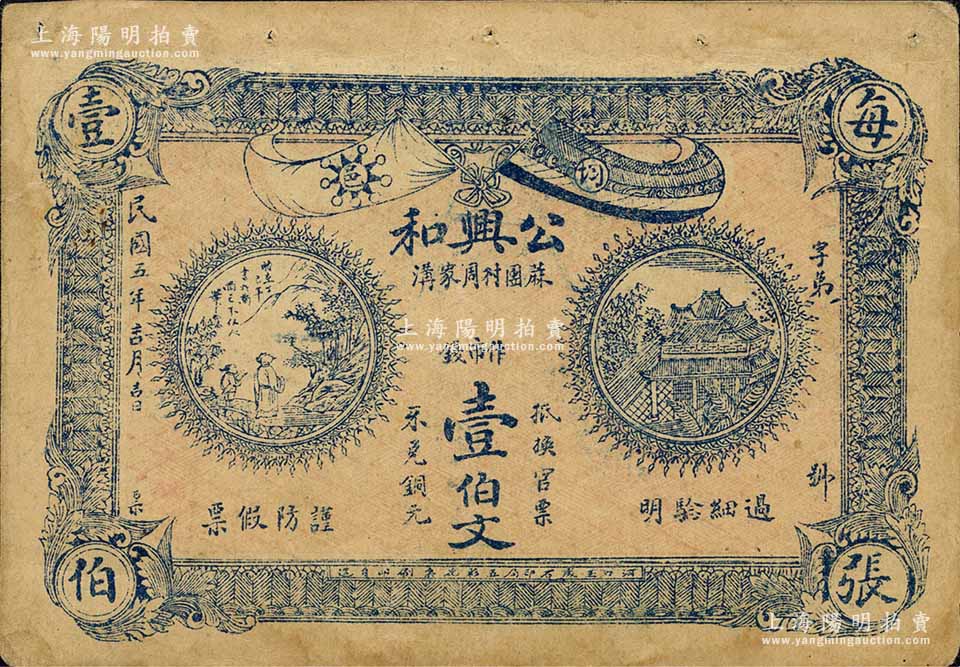 上海陽明拍賣
www.yangmingauction.com
每
壹
邑
公興和
蔴園村周家溝
字第
號
上海陽明拍賣
www.yangmingauction.com
作市錢
壹伯文
抵換官票
不兌銅元
過細驗明
謹防假票
民國五年
月吉日
票
張
伯
上海陽明拍賣
www.yangmingauction.com